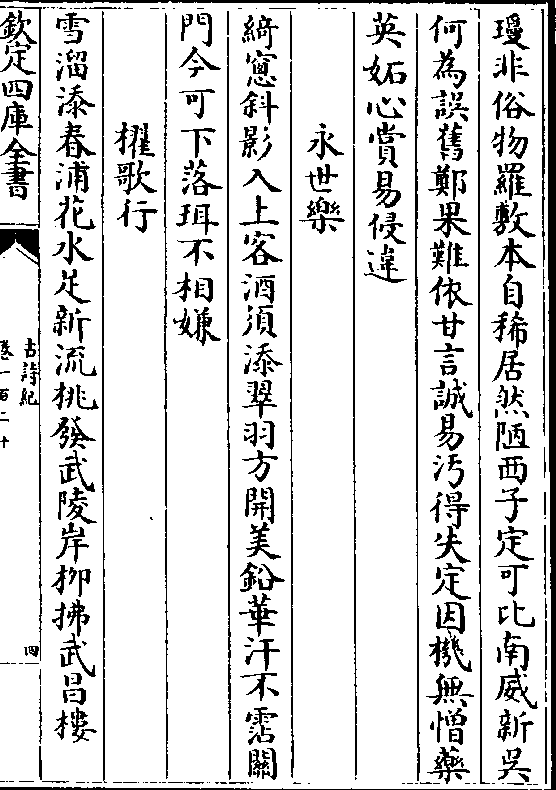 瓊非俗物羅敷本自稀居然陋西子定可比南威新吳
何為誤舊鄭果難依甘言誠易污得失定因機無憎藥
英妬心賞易侵違
永世樂
綺窻斜影入上客酒須添翠羽方開美鉛華汗不霑關
門今可下落珥不相嫌
櫂歌行
雪溜添春浦花水足新流桃發武陵岸栁拂武昌樓
欽定四庫全書
古詩紀
卷一百二十
四